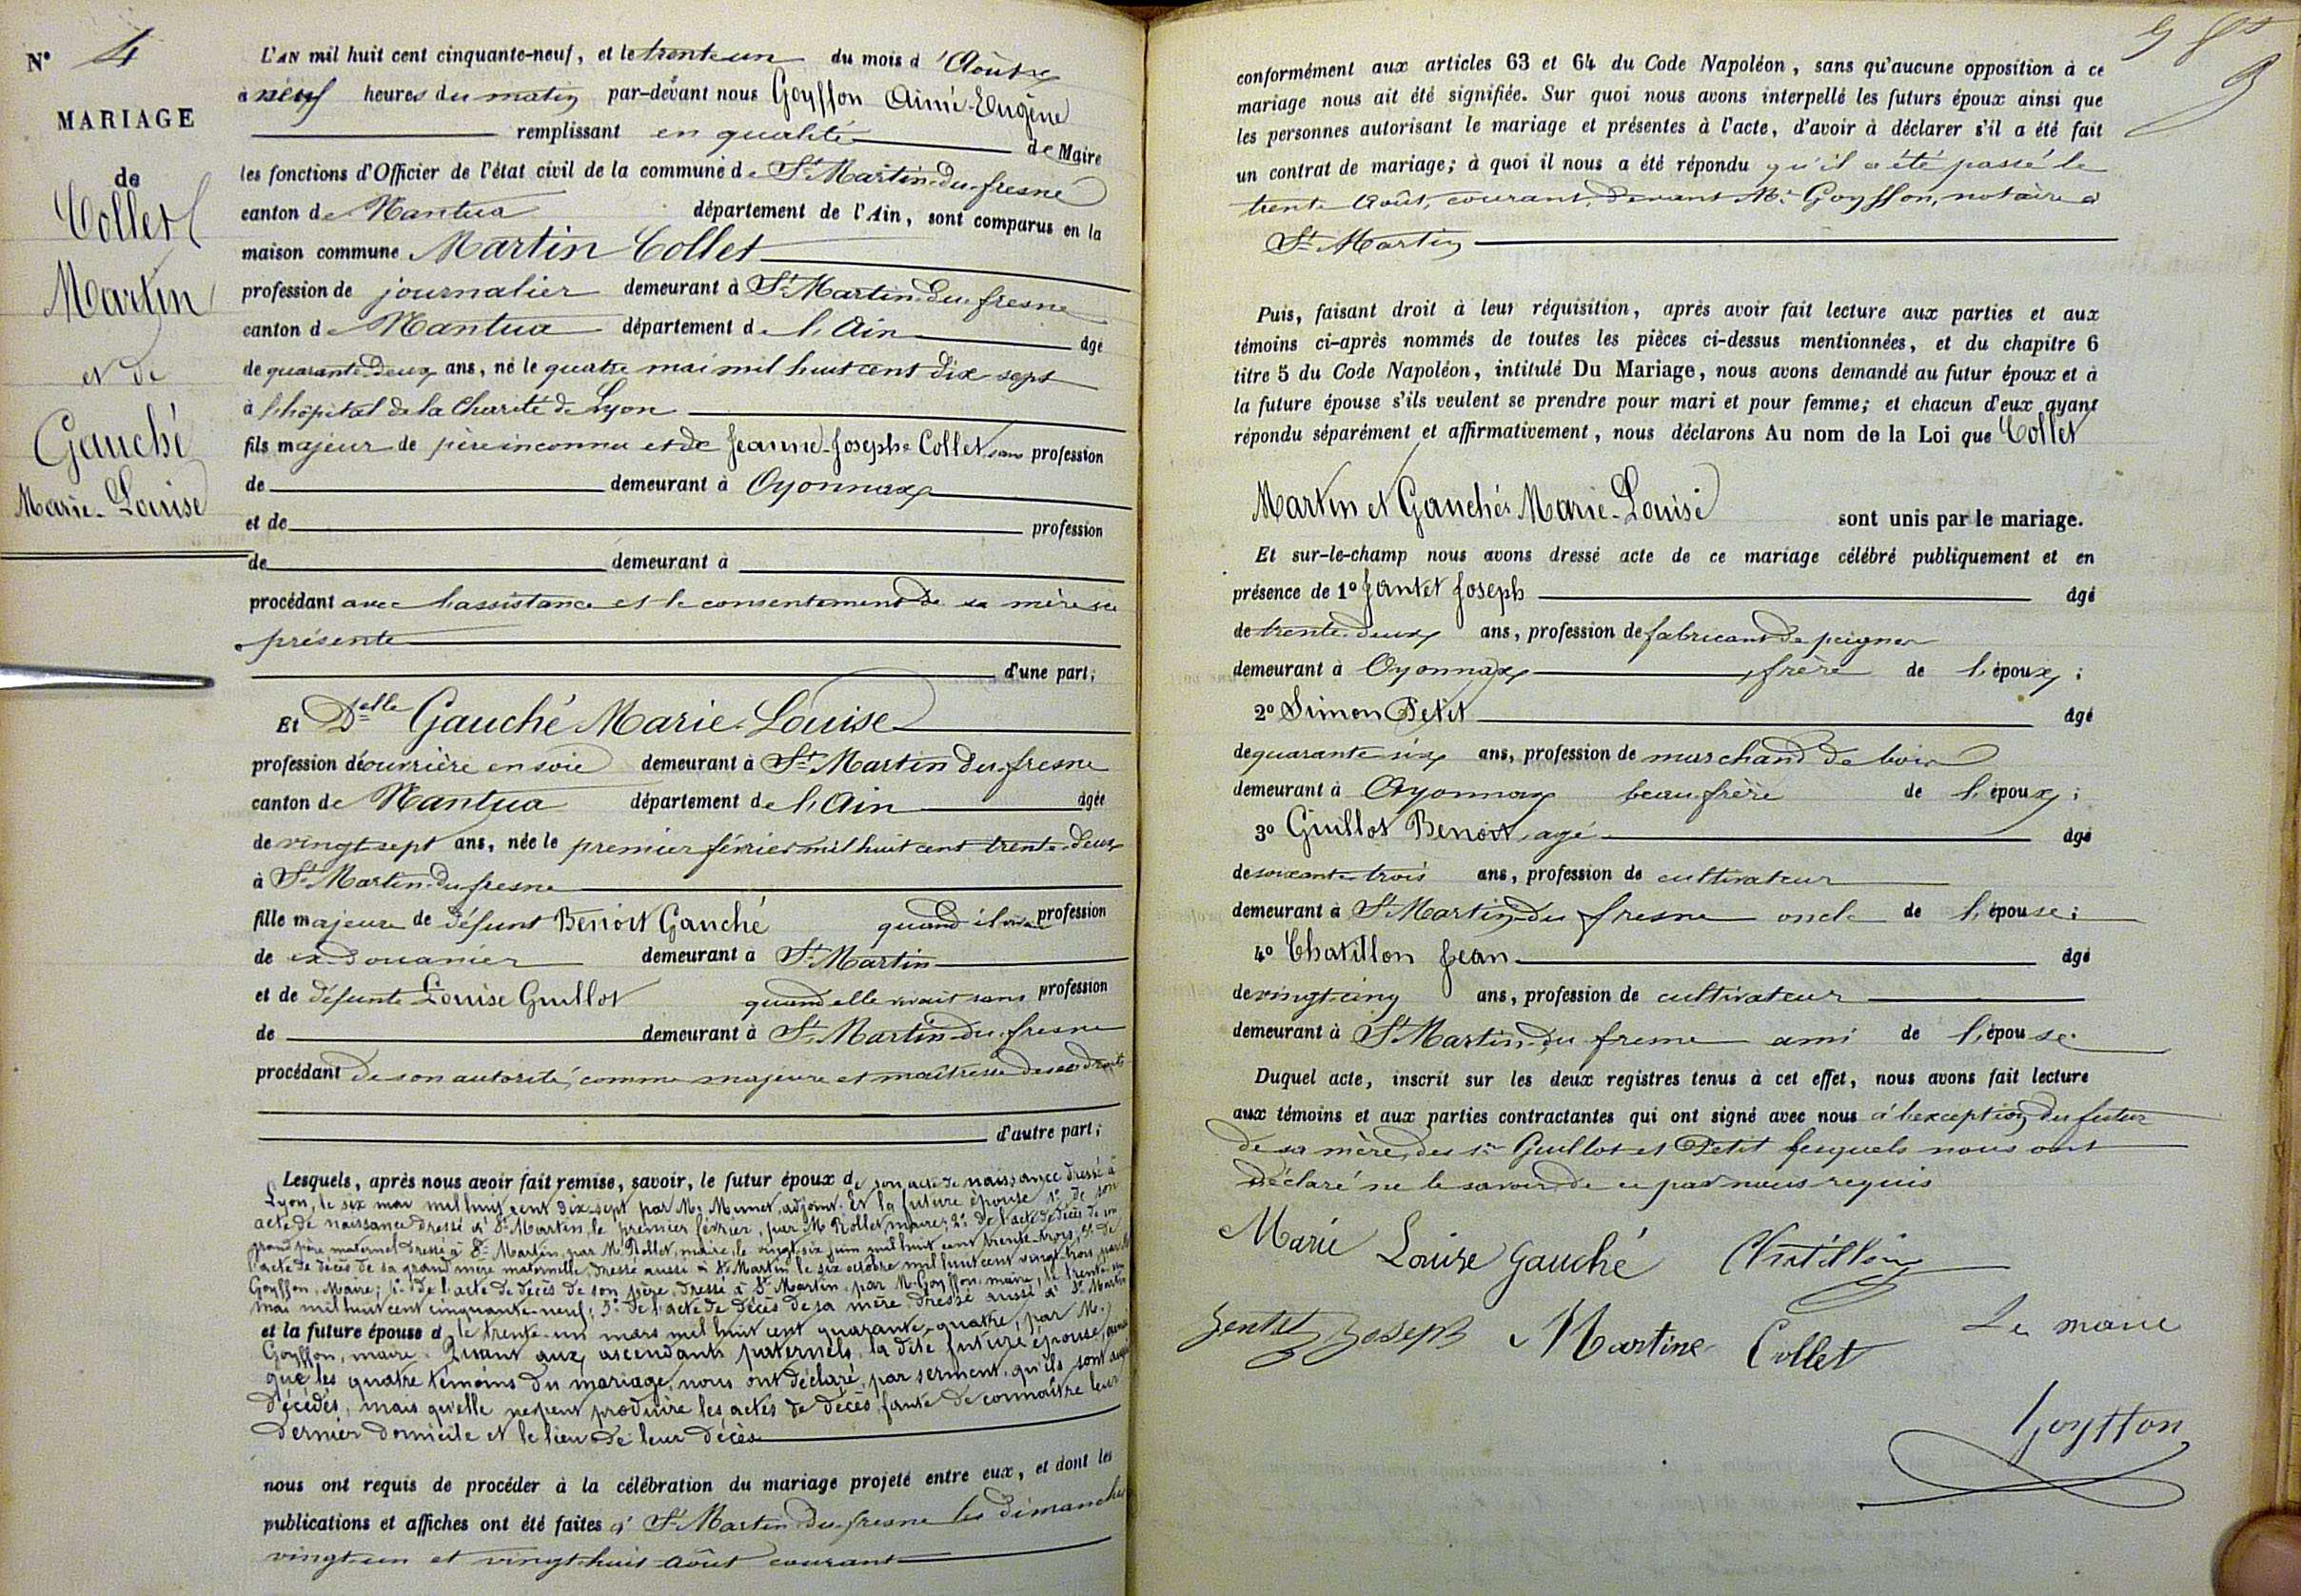 N° 4
MARIAGE
de
Collet
Martin
et de
Gauché
Marie-Louise
L'AN mil huit cent cinquante-neuf, et le trente un du mois d'Août
à neuf heures du matin par-devant nous Goyffon Aimé-Eugène
remplissant en qualité de Maire
les fonctions d'Officier de l'état civil de la commune de St Martin-du-fresne
canton de Nantua département de l'Ain, sont comparus en la
maison commune Martin Collet
profession de journalier demeurant à St Martin-du-fresne
canton de Nantua département de l'Ain âgé
de quarante-deux ans, né le quatre mai mil huit cent dix-sept
à l'hôpital de la Charité de Lyon
fils majeur de père inconnu et de Jeanne-Josephe Collet, sans profession
de demeurant à Oyonnax
et de profession
de demeurant à
procédant avec l'assistance et le consentement de sa mère ici
présente
d'une part;
Et Delle Gauché Marie-Louise
profession d'ouvrière en soie demeurant à St Martin du fresne
canton de Nantua département de l'Ain âgée
de vingt-sept ans, née le premier février mil huit cent trente-deux
à St Martin-du-fresne
fille majeure de défunt Benoit Gauché quand il vivait profession
de ex-Douanier demeurant à St Martin
et de défunte Louise Guillot quand elle vivait sans profession
de demeurant à St Martin-du-fresne
procédant de son autorité, comme majeure et maîtresse de ses droits
d'autre part;
Lesquels, après nous avoir fait remise, savoir, le futur époux de son acte de naissance dressé à
Lyon, le six mai mil huit cent dix-sept par Mr adjoint. Et la future épouse 1° de son
acte de naissance dressé à St Martin, le premier février, par M. Rollet, maire; 2° de l'acte de décès de son
grand père maternel dressé à St Martin, par M. Rollet, maire, le vingt-six juin mil huit cent trente-trois; 3° de
l'acte de décès de sa grand mère maternelle, dressé aussi à St Martin le six octobre mil huit cent vingt-trois, par
Goyffon, Maire; 4° de l'acte de décès de son père, dressé à St Martin, par M. Goyffon, maire, le trente-un
mai mil huit cent cinquante-neuf; 5° de l'acte de décès de sa mère dressé aussi à St Martin
et la future épouse d le trente-un mars mil huit cent quarante-quatre, par M.
Goyffon, maire. Quant aux ascendants paternels, la dite future épouse, ainsi
que les quatre témoins du mariage, nous ont déclaré, par serment, qu'ils sont aussi
décédés, mais qu'elle ne peut produire les actes de décès, faute de connaître leur
dernier domicile et le lieu de leur décès
nous ont requis de procéder à la célébration du mariage projeté entre eux, et dont les
publications et affiches ont été faites à St Martin-du-fresne les dimanches
vingt-un et vingt-huit août courant
conformément aux articles 63 et 64 du Code Napoléon, sans qu'aucune opposition à ce
mariage nous ait été signifiée. Sur quoi nous avons interpellé les futurs époux ainsi que
les personnes autorisant le mariage et présentes à l'acte, d'avoir à déclarer s'il a été fait
un contrat de mariage; à quoi il nous a été répondu qu'il a été passé le
trente Août, courant, devant Me Goyffon, notaire à
St Martin
Puis, faisant droit à leur réquisition, après avoir fait lecture aux parties et aux
témoins ci-après nommés de toutes les pièces ci-dessus mentionnées, et du chapitre 6
titre 5 du Code Napoléon, intitulé Du Mariage, nous avons demandé au futur époux et à
la future épouse s'ils veulent se prendre pour mari et pour femme; et chacun d'eux ayant
répondu séparément et affirmativement, nous déclarons Au nom de la Loi que Collet
Martin et Gauché Marie-Louise sont unis par le mariage.
Et sur-le-champ nous avons dressé acte de ce mariage célébré publiquement et en
présence de 1° Jantet Joseph âgé
de trente-deux ans, profession de fabricant de peignes
demeurant à Oyonnax, frère de l'époux;
2° Simon Petit âgé
de quarante six ans, profession de marchand de bois
demeurant à Oyonnax beau frère de l'époux;
3° Guillot Benoit, agé âgé
de soixante-trois ans, profession de cultivateur
demeurant à St Martin du fresne oncle de l'épouse;
4° Chatillon Jean âgé
de vingt-cinq ans, profession de cultivateur
demeurant à St Martin-du fresne ami de l'épouse.
Duquel acte, inscrit sur les deux registres tenus à cet effet, nous avons fait lecture
aux témoins et aux parties contractantes qui ont signé avec nous à l'exception du futur
de sa mère, des srs Guillot et Petit lesquels nous ont
déclaré ne le savoir de ce par nous requis
Marie Louise Gauché Chatillon
Jentet Joseph Martine Collet Le maire
Goyffon